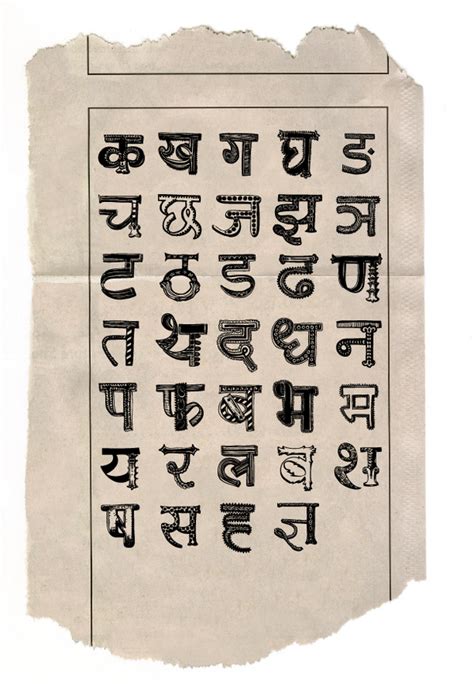 क ख ग घ ङ
च छ ज झ ञ
ट ठ ड ढ ण
त थ द ध न
प फ ब भ म
य र ल व श
ष स ह ज्ञ